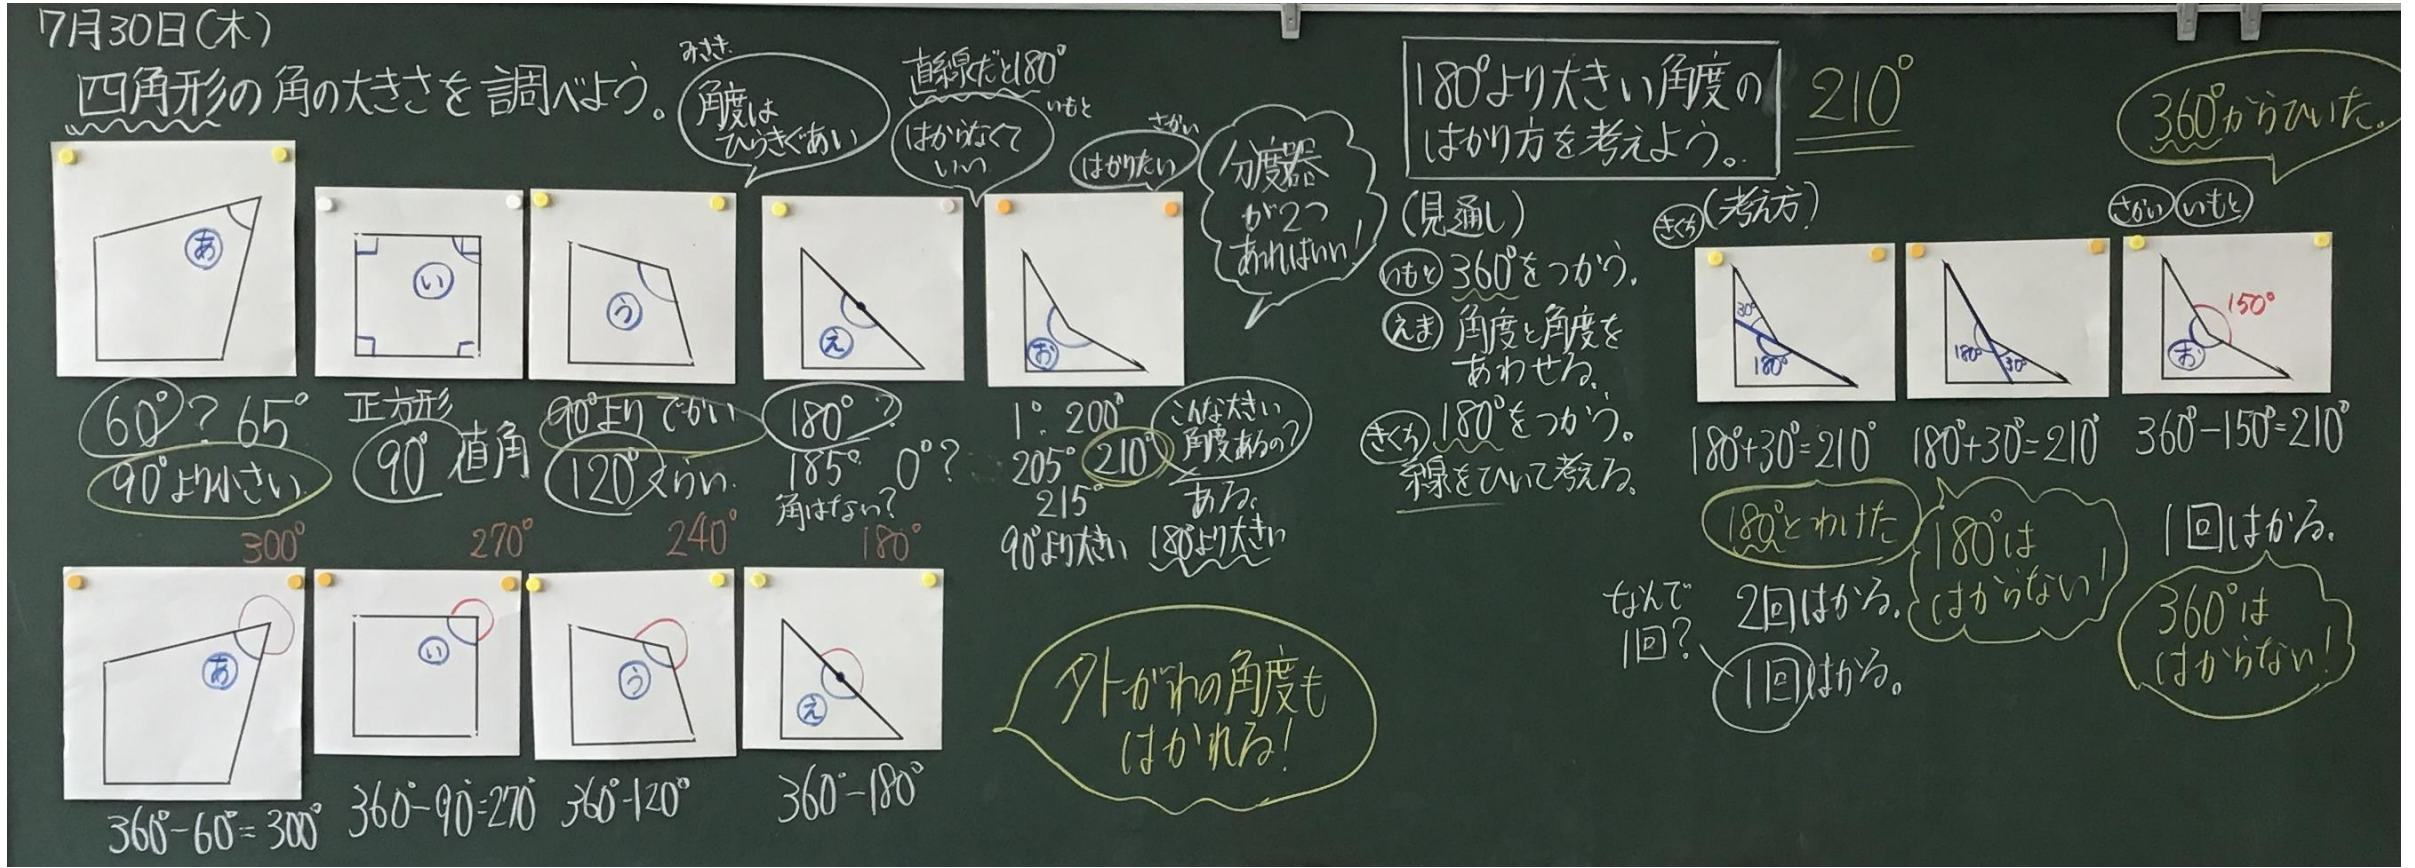 7月30日(木)
四角形の角の大きさを調べよう。
みさき
角度は
ひらきぐあい
直線だと180°
いもと
はからなくて
いい
さかい
はかりたい
分度器
が2つ
あればいい!
あ
い
う
え
お
60°? 65°
90°より小さい
正方形
90° 直角
90°よりでかい
120°くらい
180°?
185° 0°?
角はない?
1°: 200°
205° 210°
215°
90°より大きい
こんな大きい
角度あるの?
ある。
180°より大きい
300°
270°
240°
180°
あ
い
う
え
360°-60°=300°
360°-90°=270°
360°-120°
360°-180°
外がわの角度も
はかれる!
180°より大きい角度の
はかり方を考えよう。
210°
(見通し)
いもと 360°をつかう。
えま 角度と角度を
あわせる。
きくち 180°をつかう。
線をひいて考える。
きくち (考え方)
30°
180°
180°
30°
さかい いもと
360°からひいた。
150°
お
180°+30°=210°
180°+30°=210°
360°-150°=210°
180°とわけた
2回はかる。
なんで
1回?
1回はかる。
180°は
はからない!
1回はかる。
360°は
はからない!